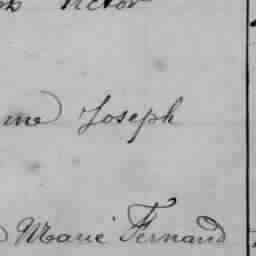 Victor
me Joseph
Marie Fernand